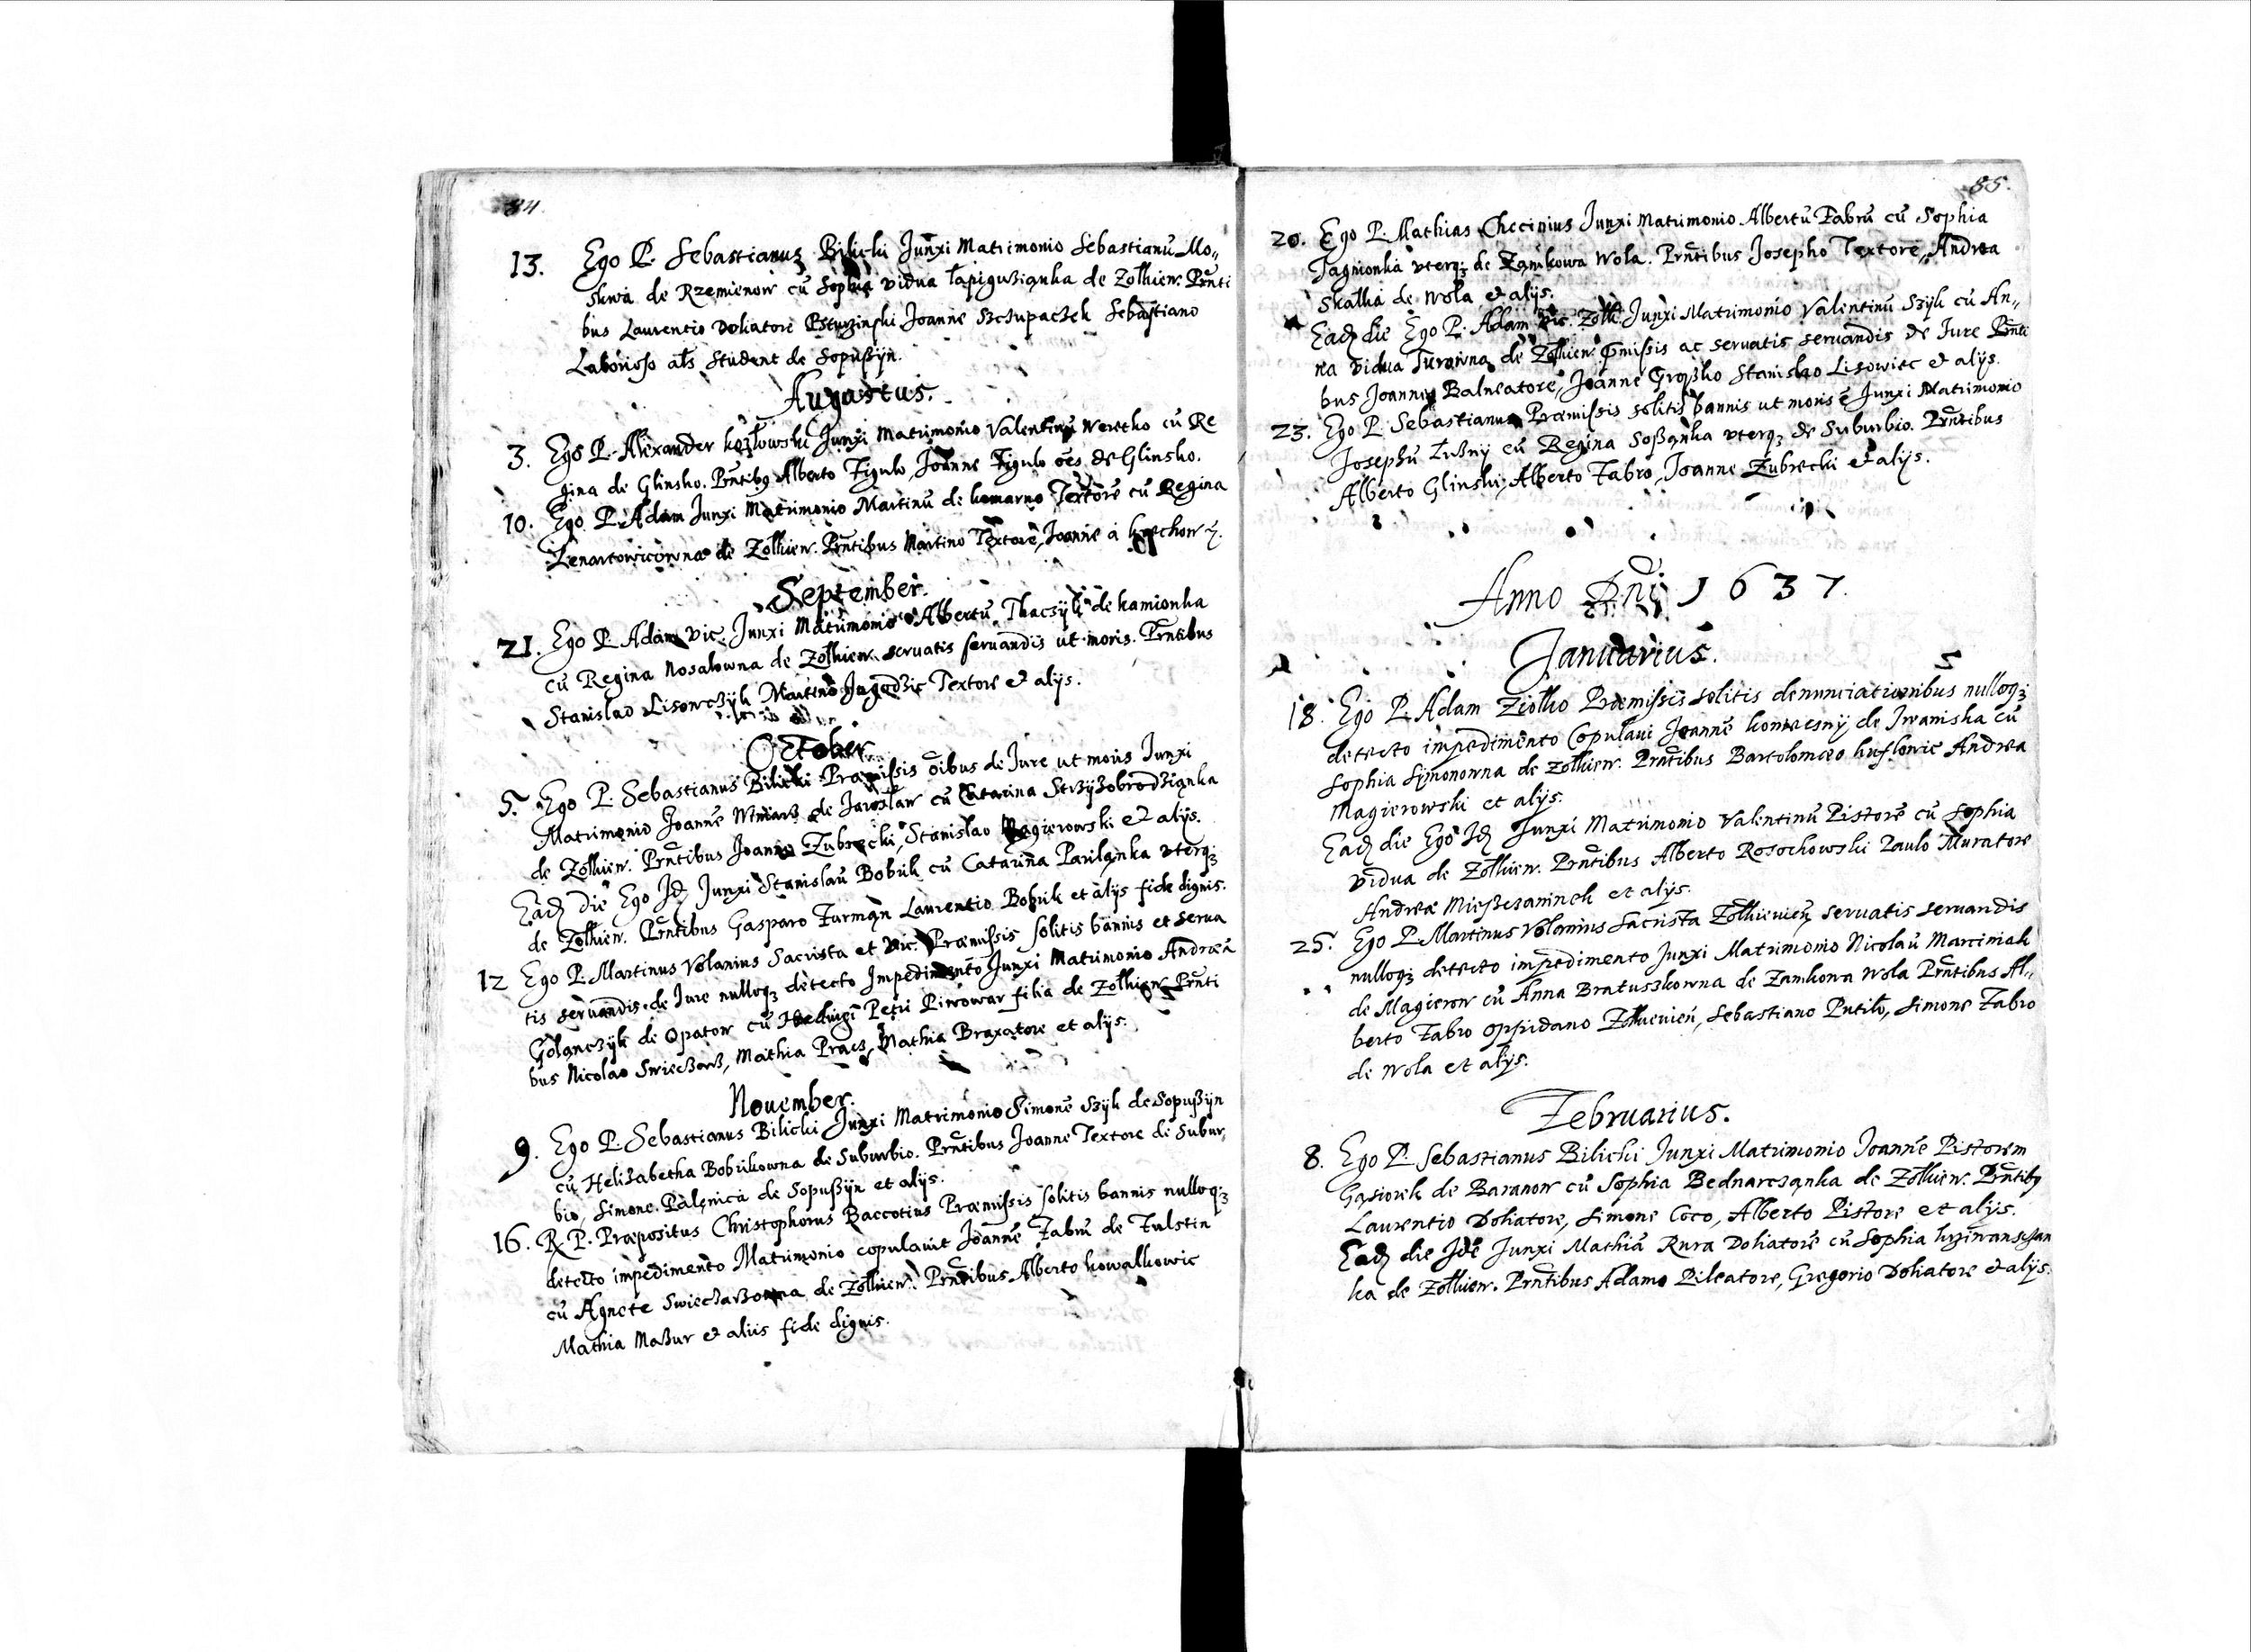 84.
13. Ego P. Sebastianus Bilicki Junxi Matrimonio Sebastianū Mo„
skwa de Rzemienow cū Sophia vidua Łapiguzianka de Zolkiew. Pñti
bus Laurentio Doliatore Joanne Szczupaczek Sebastiano
Laborioso als Student de Sopußyn.
Augustus.
3. Ego P. Alexander kozłowski Junxi Matrimonio Valentinū Weretko cū Re
gina de Glinsko. Pñtibus Alberto Figulo, Joanne Figulo oēs de Glinsko.
10. Ego P. Adam Junxi Matrimonio Martinū de komarno Textorē cū Regina
Lenartowicowna de Zolkiew. Pñtibus Martino Textore, Joanne a
September.
21. Ego P. Adam Vic. Junxi Matrimonio Albertū Tkaczyk de kamionka
cū Regina Nosalowna de Zolkiew. servatis servandis ut moris. Pñtibus
Stanislao Lisowczyk Martino Textore et alijs.
October.
5. Ego P. Sebastianus Bilicki Præmissis oībus de Jure ut moris Junxi
Matrimonio Joannē Winiarz de Jaroslaw cū Catarina Strzyzobrodzianka
de Zolkiew. Pñtibus Joanne Zubrecki, Stanislao Magierowski et alijs.
Eadē die Ego Idē Junxi Stanislaū Bobrik cū Catarina Pavlanka uterq;
de Zolkiew. Pñtibus Gasparo Furman Laurentio Bobrik et alijs fide dignis.
12 Ego P. Martinus Volanius Sacrista et Vic. Præmissis solitis bannis et serva
tis servandis de Jure nulloq; detecto Impedimento Junxi Matrimonio Andreā
Golanczyk de Opatow cū Hedvigi Petri Piwowar filia de Zolkiew. Pñti
bus Nicolao Swieczarz, Mathia Pracz, Mathia Braxatore et alijs.
November.
9. Ego P. Sebastianus Bilicki Junxi Matrimonio Simonē Szyk de Sopußyn
cū Helizabetha Bobrikowna de Suburbio. Pñtibus Joanne Textore de Subur„
bio, Simone Palenica de Sopußyn et alijs.
16. R. P. Præpositus Christophorus Baccotius Præmissis solitis bannis nulloq;
detecto impedimento Matrimonio copulavit Joannē Fabrū de Fulstin
cū Agnete Swieczarzowna de Zolkiew. Pñtibus Alberto kowalkowic
Mathia Mazur et aliis fide dignis.
85.
20. Ego P. Mathias Checinius Junxi Matrimonio Albertū Fabrū cū Sophia
Jagnionka uterq; de Zamkowa Wola. Pñtibus Josepho Textore, Andrea
Skałka de Wola et alijs.
Eadē die Ego P. Adam Vic. Zolk. Junxi Matrimonio Valentinū Szyk cū An„
na vidua Turowna de Zolkiew. Pmissis ac servatis servandis de Jure Pñti
bus Joanne Balneatore, Joanne Stanislao Lisowiec et alijs.
23. Ego P. Sebastianus Præmissis solitis bannis ut moris ē Junxi Matrimonio
Josephū Łuzny cū Regina Soßanka uterq; de Suburbio. Pñtibus
Alberto Glinski, Alberto Fabro, Joanne Zubrecki et alijs.
Anno Dni 1637.
Januarius.
18. Ego P. Adam Ziolko Præmissis solitis denunciationibus nulloq;
detecto impedimento Copulavi Joannē de Iwaniska cū
Sophia Symonowna de Zolkiew. Pñtibus Bartolomæo Andrea
Magierowski et alijs.
Eadē die Ego Idē Junxi Matrimonio Valentinū Pistorē cū Sophia
vidua de Zolkiew. Pñtibus Alberto Rosochowski Paulo Muratore
Andrea Mießczaninek et alijs.
25. Ego P. Martinus Volanius Sacrista Zolkievień servatis servandis
nulloq; detecto impedimento Junxi Matrimonio Nicolaū Marciniak
de Magierow cū Anna Bratuszkowna de Zamkowa Wola Pñtibus Al„
berto Fabro oppidano Zolkievień, Sebastiano Putiło, Simone Fabro
de Wola et alijs.
Februarius.
8. Ego P. Sebastianus Bilicki Junxi Matrimonio Joannē Pistorem
Gąsiorek de Baranow cū Sophia Bednarczanka de Zolkiew. Pñtibus
Laurentio Doliatore, Simone Coco, Alberto Pistore et alijs.
Eadē die Idē Junxi Mathiā Rura Doliatorē cū Sophia krziwanszan
ka de Zolkiew. Pñtibus Adamo Pileatore, Gregorio Doliatore et alijs.